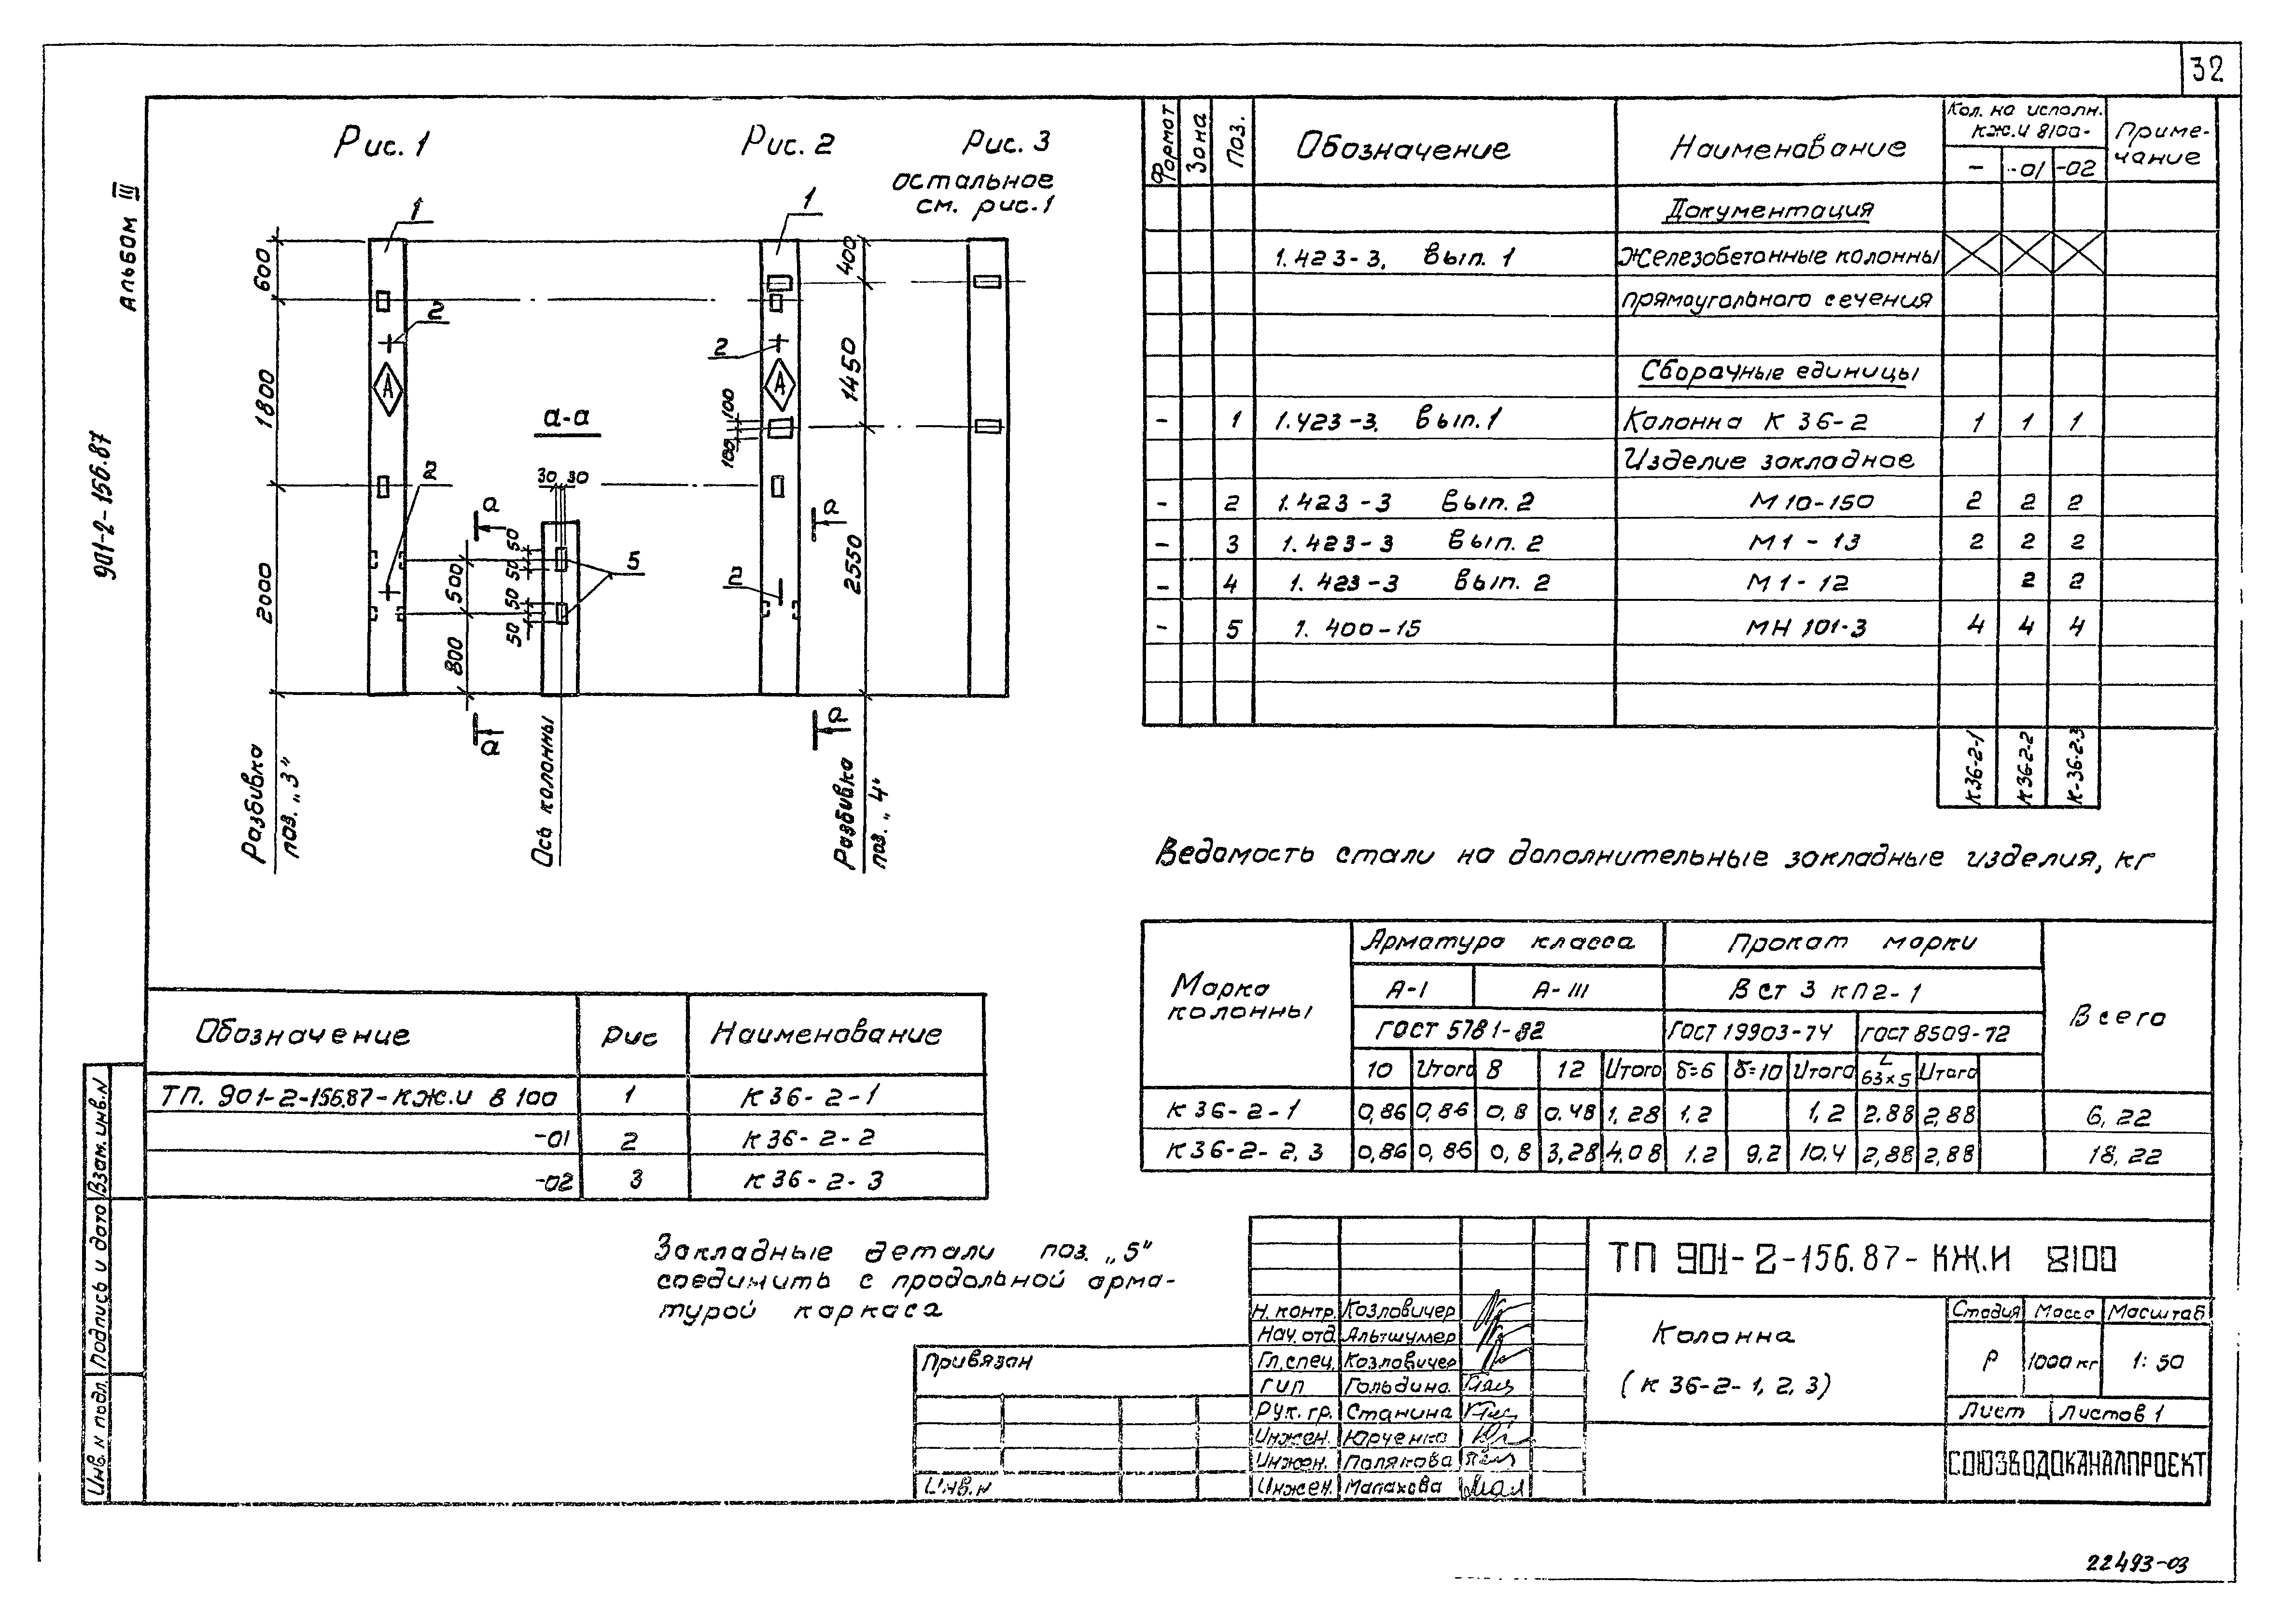 32
Альбом III
901-2-156.87
Рис. 1
Рис. 2
Рис. 3
остальное
см. рис.1
1
1
600
1800
2000
2
2
А
а-а
30 30
50
50
50
50
500
800
5
а
а
100
100
2
2
А
400
1450
2550
а
а
Разбивка
поз. „3"
Ось колонны
Разбивка
поз. „4"
Формат
Зона
Поз.
Обозначение
Наименование
Кол. на исполн.
КЖ.И 8100-
- -01 -02
Приме-
чание
Документация
1.423-3. Вып. 1 Железобетонные колонны
прямоугольного сечения
Сборочные единицы
- 1 1.423-3. Вып.1 Колонна К 36-2 1 1 1
Изделие закладное
- 2 1.423-3 Вып. 2 М 10-150 2 2 2
- 3 1.423-3 Вып. 2 М 1 - 13 2 2 2
- 4 1.423-3 Вып. 2 М 1 - 12 2 2
- 5 1.400-15 МН 101-3 4 4 4
К36-2-1
К36-2-2
К-36-2-3
Ведомость стали на дополнительные закладные изделия, кг
Марка
колонны
Арматура класса
Прокат марки
Всего
А-I А-III В ст 3 кп2-1
ГОСТ 5781-82 ГОСТ 19903-74 ГОСТ 8509-72
10 Итого 8 12 Итого δ=6 δ=10 Итого L 63×5 Итого
К 36-2-1 0,86 0,86 0,8 0.48 1,28 1,2 1,2 2.88 2,88 6,22
К 36-2-2,3 0,86 0,86 0,8 3,28 4.08 1.2 9,2 10.4 2,88 2,88 18,22
Обозначение Рис Наименование
ТП. 901-2-156.87-КЖ.И 8100 1 К 36-2-1
-01 2 К 36-2-2
-02 3 К 36-2-3
Закладные детали поз. „5"
соединить с продольной арма-
турой каркаса
Взам. инв. N
Подпись и дата
Инв. N подл.
Привязан
Инв. N
Н. контр. Козловичер
Нач. отд. Альтшулер
Гл. спец. Козловичер
ГИП Гольдина
Рук. гр. Станина
Инжен. Юрченко
Инжен. Полякова
Инжен. Малахова
ТП 901-2-156.87-КЖ.И 8100
Колонна
(К 36-2-1, 2, 3)
Стадия Масса Масштаб
Р 1000 кг 1: 50
Лист Листов 1
СОЮЗВОДОКАНАЛПРОЕКТ
22493-03